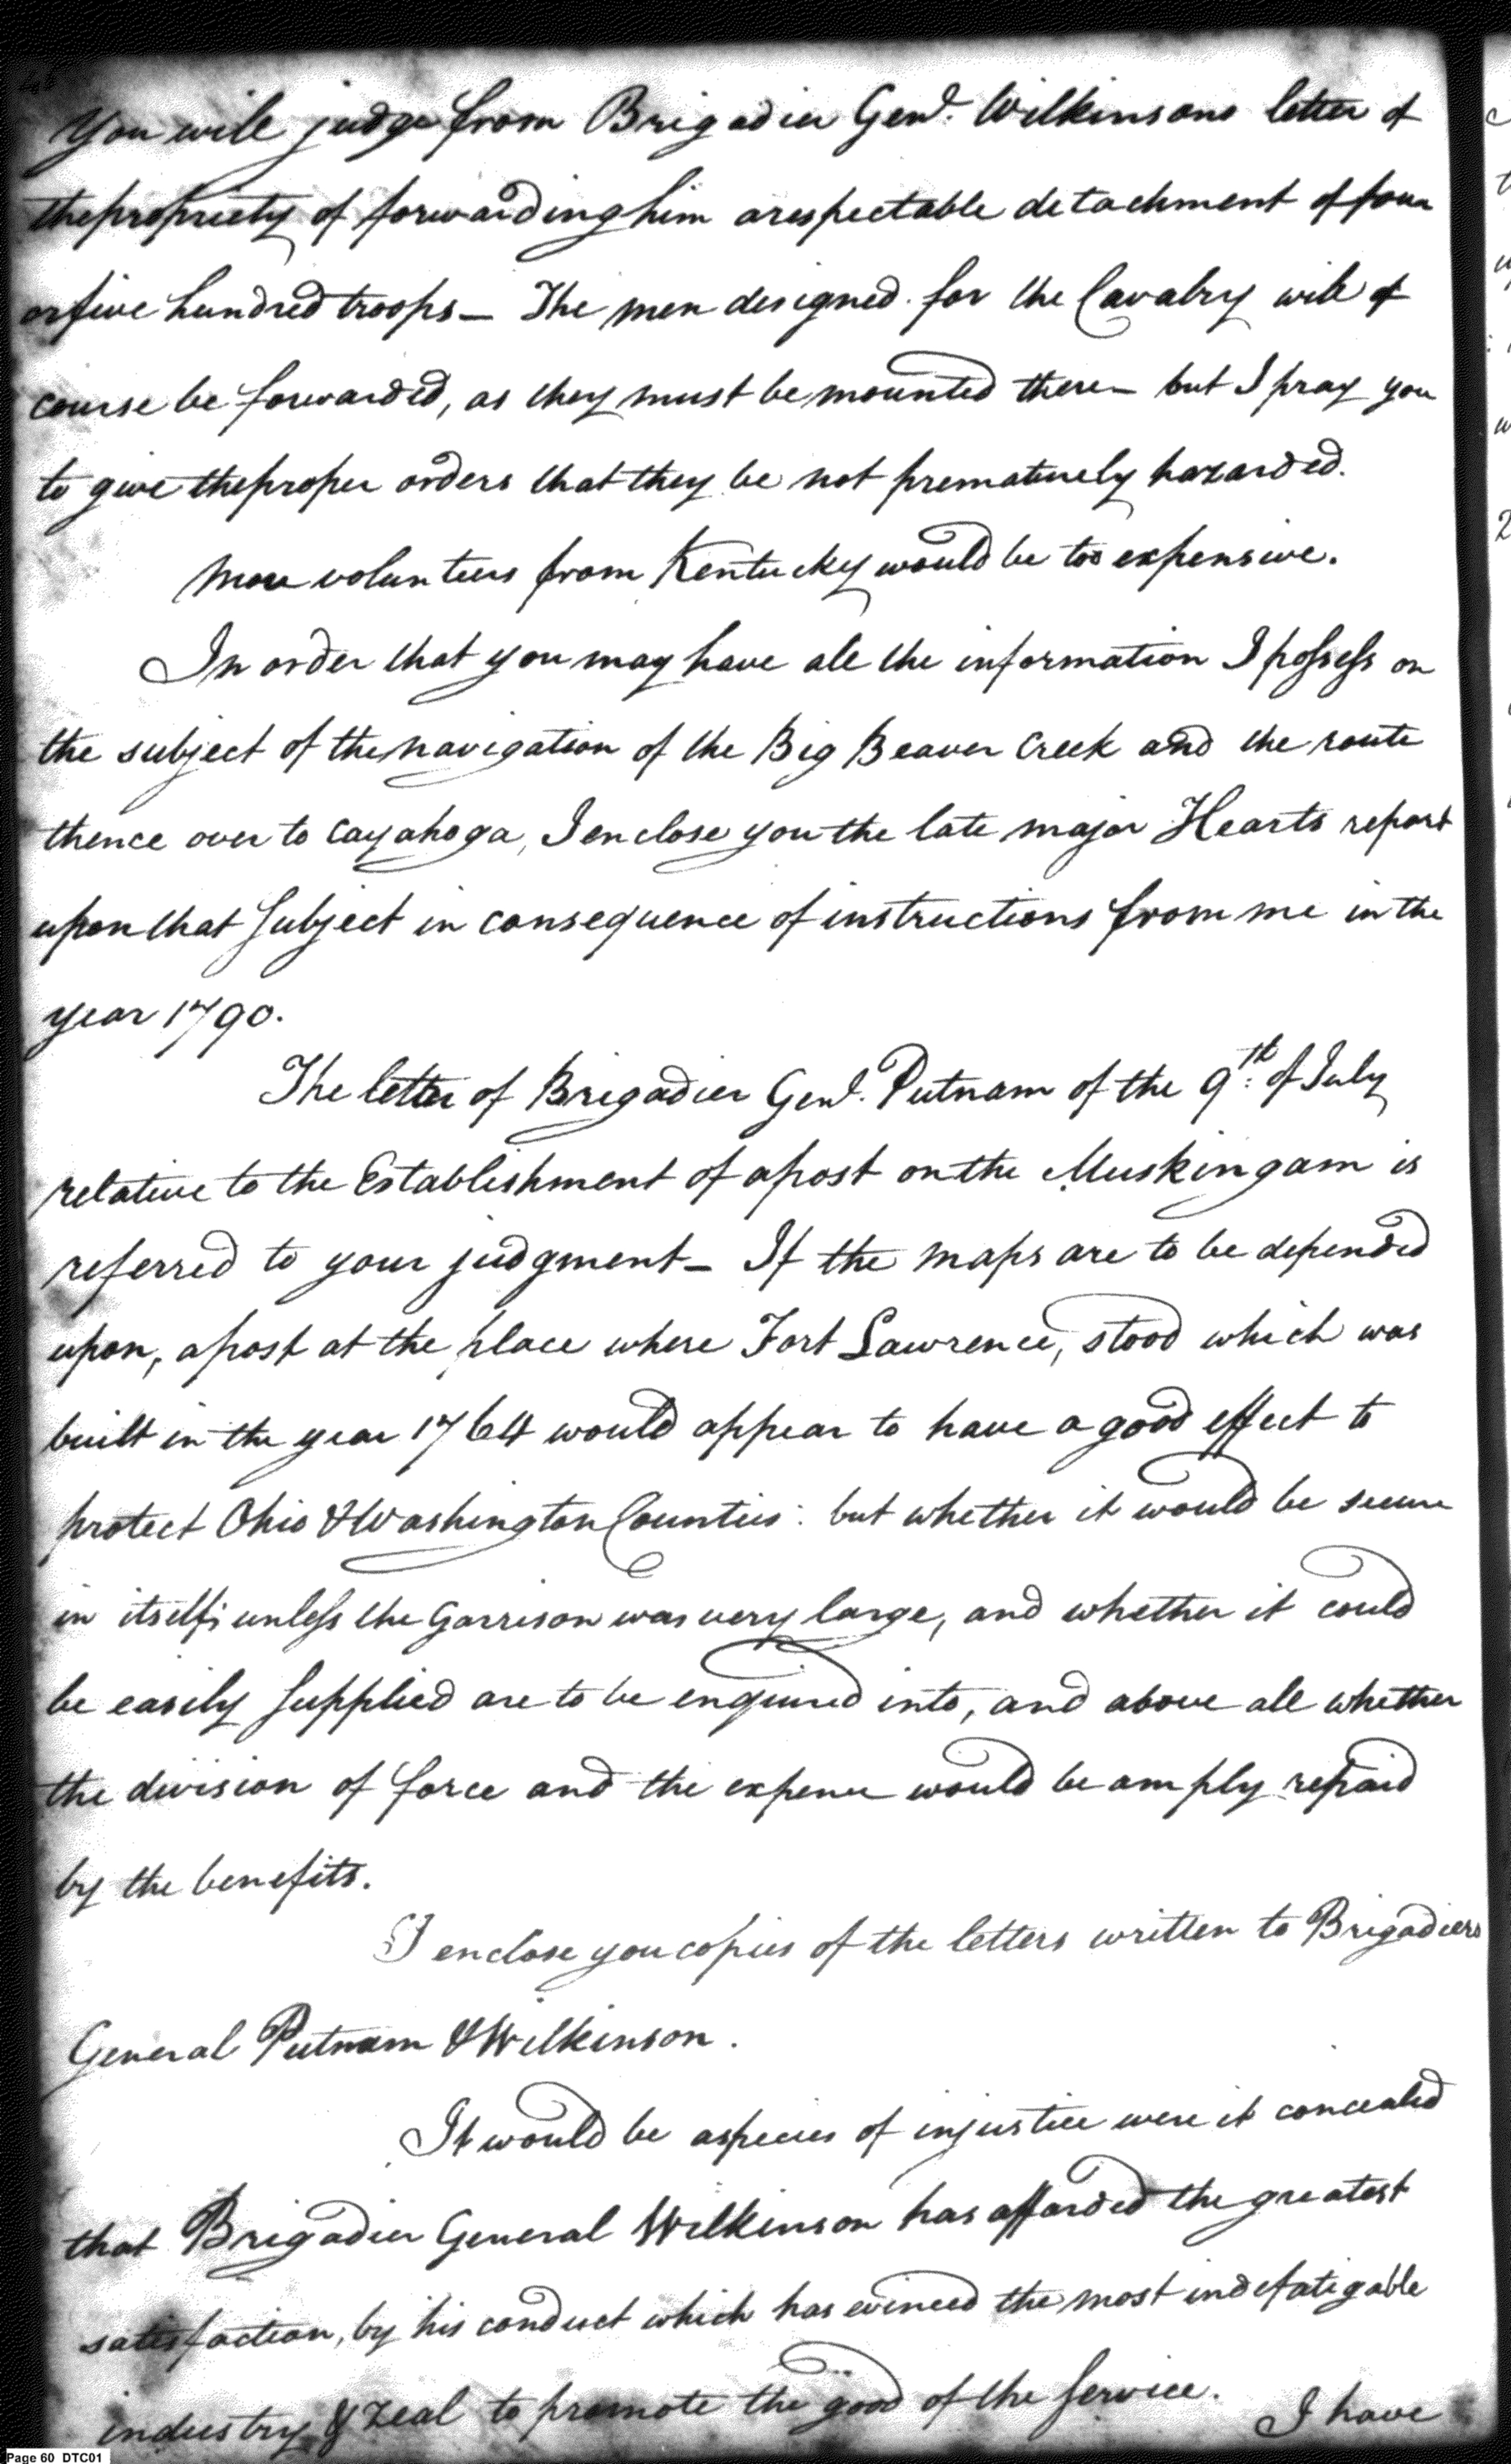 You will judge from Brigadier Genl. Wilkinsons letter of
the propriety of forwarding him a respectable detachment of four
or five hundred troops— The men designed for the Cavalry will of
course be forwarded, as they must be mounted there— but I pray you
to give the proper orders that they be not prematurely hazarded.
More volunteers from Kentucky would be too expensive.
In order that you may have all the information I possess on
the subject of the navigation of the Big Beaver Creek and the route
thence over to Cayahoga, I enclose you the late major Hearts report
upon that subject in consequence of instructions from me in the
year 1790.
The letter of Brigadier Genl. Putnam of the 9th. of July
relative to the Establishment of a post on the Muskingam is
referred to your judgment— If the maps are to be depended
upon, a post at the place where Fort Lawrence, stood which was
built in the year 1764 would appear to have a good effect to
protect Ohio & Washington Counties: but whether it would be secure
in itself; unless the Garrison was very large, and whether it could
be easily supplied are to be enquired into, and above all whether
the division of force and the expence would be amply repaid
by the benefits.
I enclose you copies of the letters written to Brigadiers
General Putnam & Wilkinson.
It would be a species of injustice were it concealed
that Brigadier General Wilkinson has afforded the greatest
satisfaction, by his conduct which has evinced the most indefatigable
industry & zeal to promote the good of the service.
I have
Page 60 DTC01